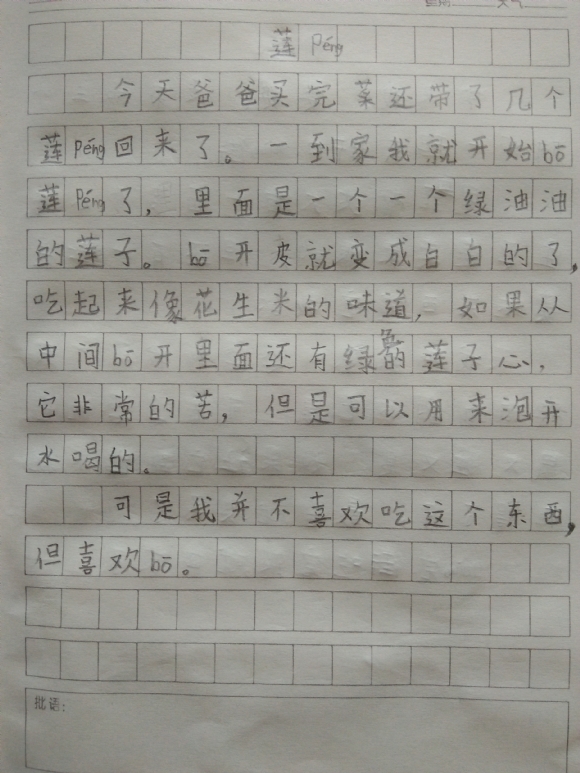 莲péng
今天爸爸买完菜还带了几个
莲péng回来了。一到家我就开始bō
莲péng了，里面是一个一个绿油油
的莲子。bō开皮就变成白白的了，
吃起来像花生米的味道，如果从
中间bō开里面还有绿色的莲子心，
它非常的苦，但是可以用来泡开
水喝的。
可是我并不喜欢吃这个东西，
但喜欢bō。
批语：